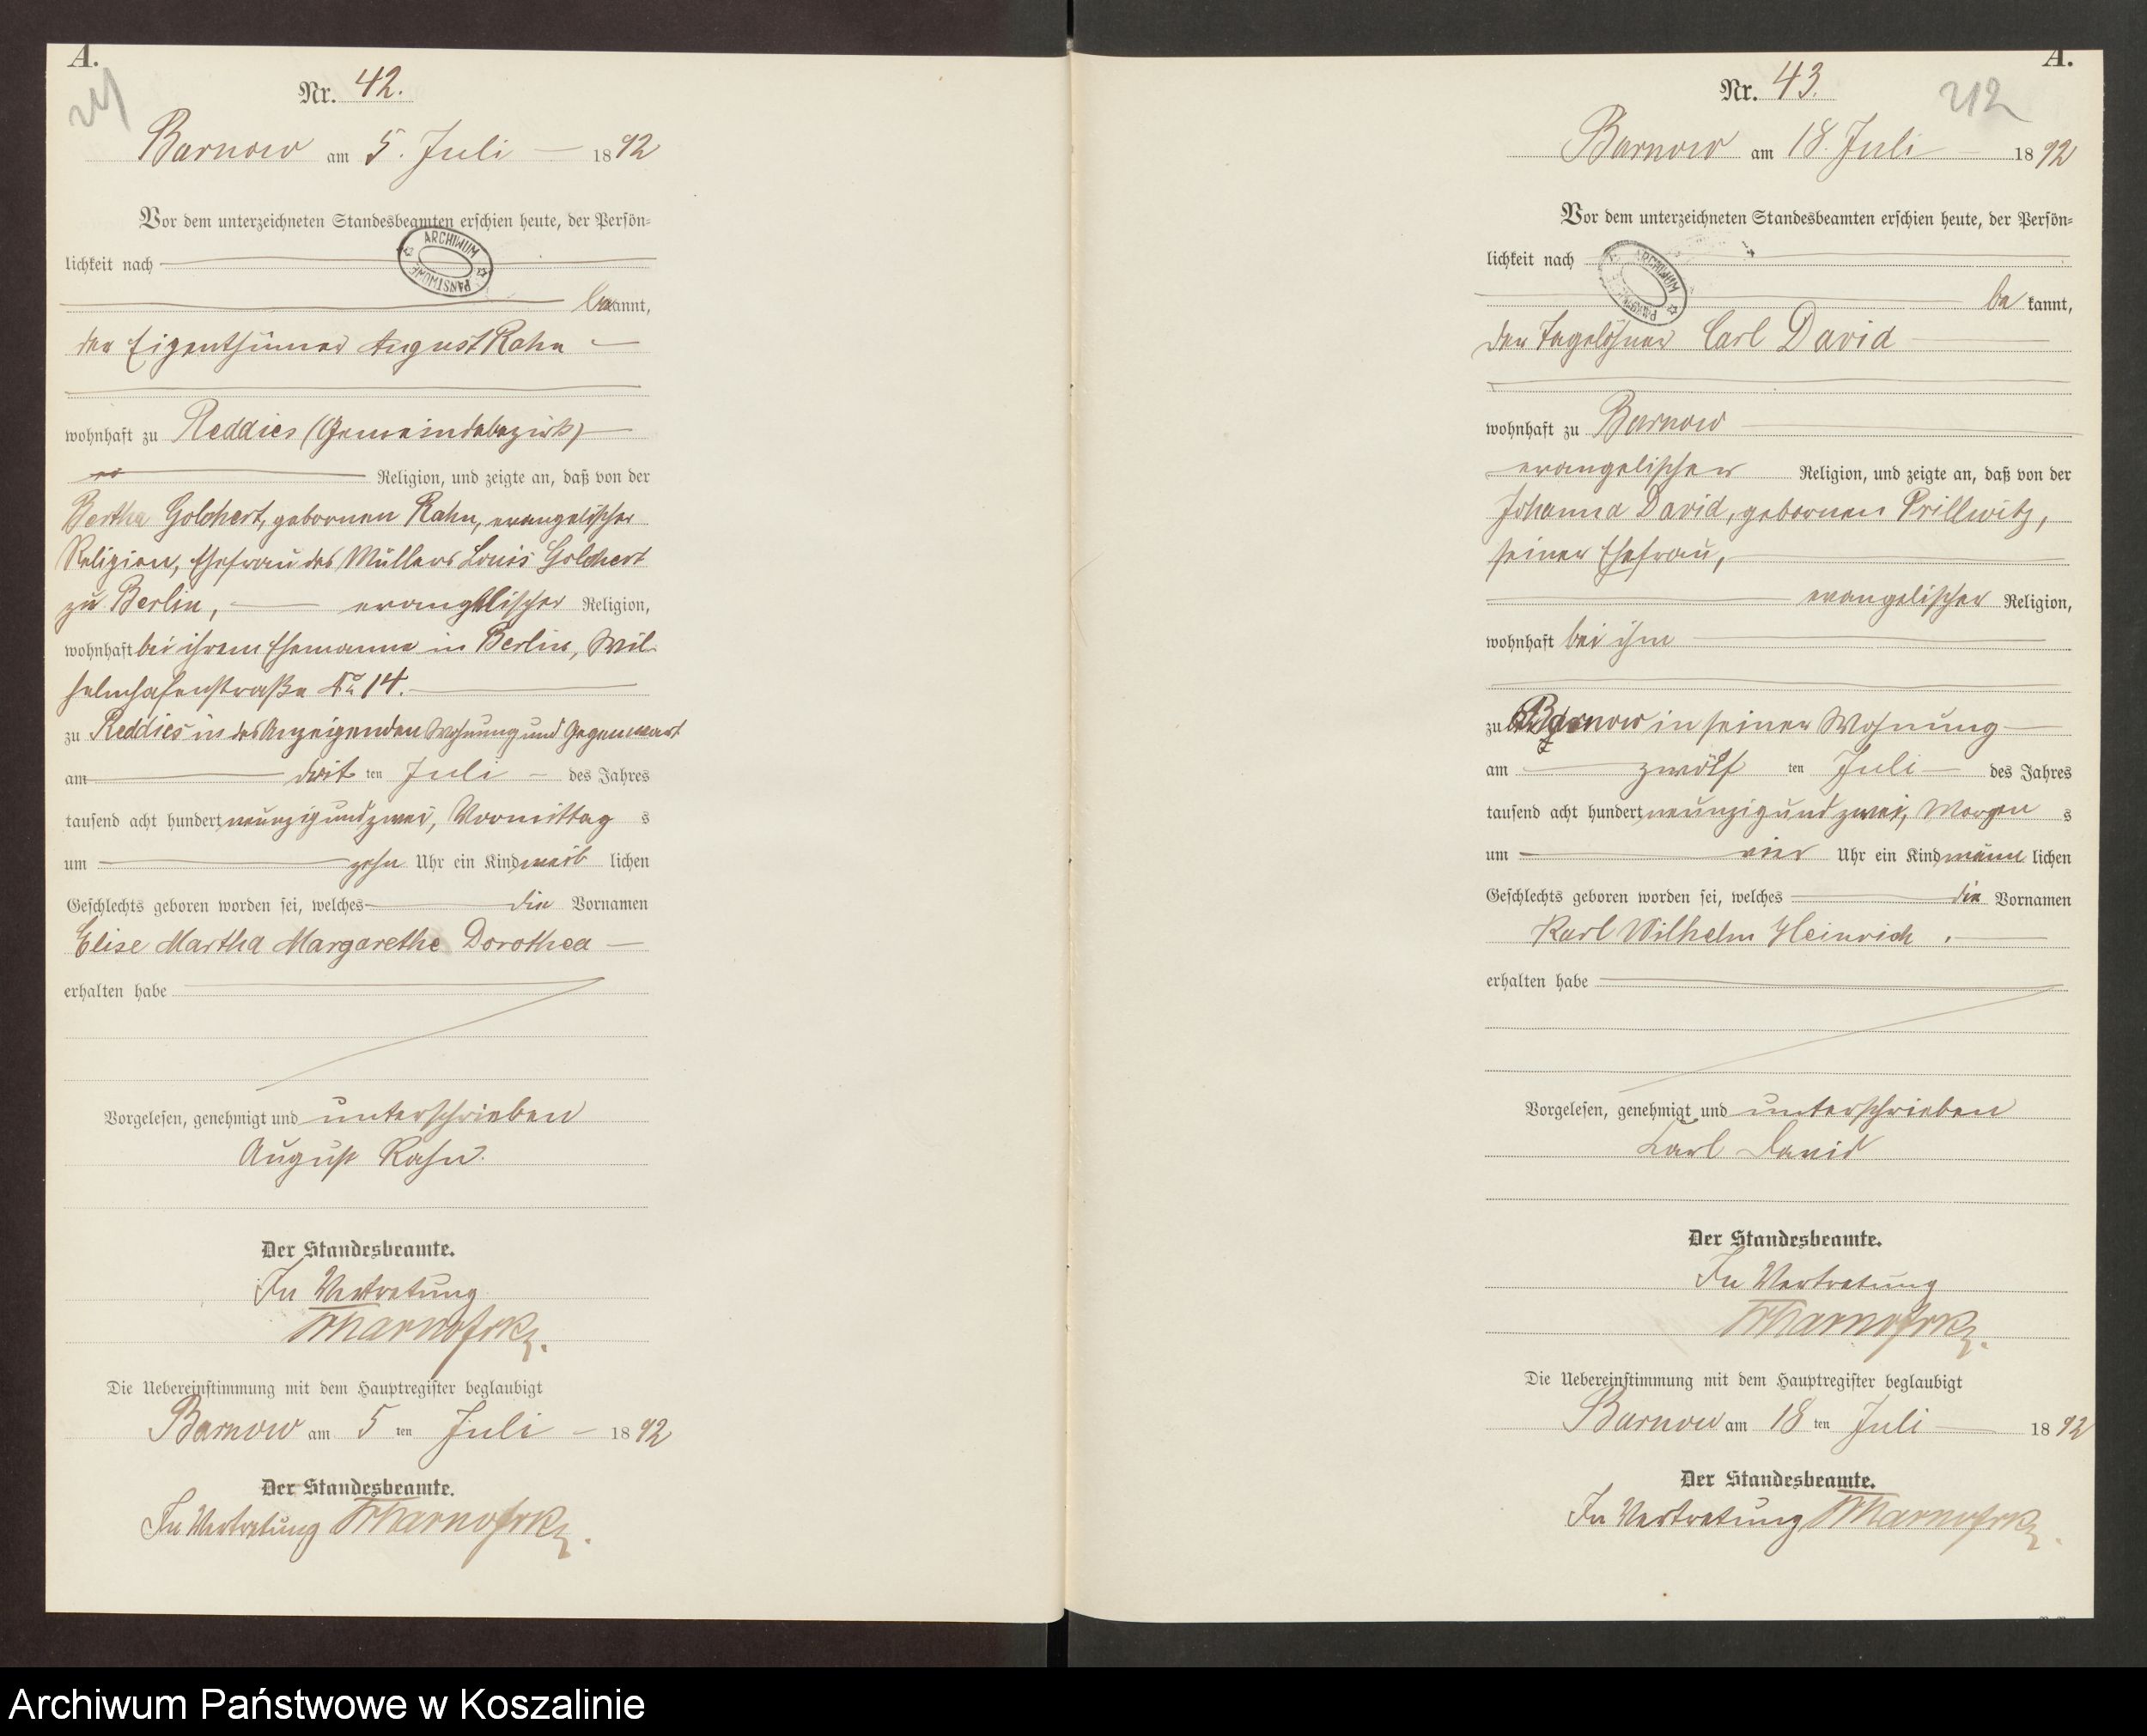 A.
Nr. 42.
Barnow am 5. Juli 1892
Vor dem unterzeichneten Standesbeamten erschien heute, der Persön-
lichkeit nach
ARCHIWUM PAŃSTWOWE
bekannt,
der Eigenthümer August Rahn
wohnhaft zu Reddies (Gemeindebezirk)
Religion, und zeigte an, daß von der
Bertha Golchert, gebornen Rahn, evangelischer
Religion, Ehefrau des Müllers Louis Golchert
zu Berlin, evangelischer Religion,
wohnhaft bei ihrem Ehemanne in Berlin, Wil-
helmshafenstraße No 14.
zu Reddies in des Anzeigenden Wohnung und Gegenwart
am drit ten Juli des Jahres
tausend acht hundert neunzig und zwei, Vormittag s
um zehn Uhr ein Kind weib lichen
Geschlechts geboren worden sei, welches die Vornamen
Elise Martha Margarethe Dorothea
erhalten habe
Vorgelesen, genehmigt und unterschrieben
August Rahn.
Der Standesbeamte.
In Vertretung
Die Uebereinstimmung mit dem Hauptregister beglaubigt
Barnow am 5 ten Juli 1892
Der Standesbeamte.
In Vertretung
A.
Nr. 43.
212
Barnow am 18. Juli 1892
Vor dem unterzeichneten Standesbeamten erschien heute, der Persön-
lichkeit nach
ARCHIWUM PAŃSTWOWE
be kannt,
der Tagelöhner Carl David
wohnhaft zu Barnow
evangelischer Religion, und zeigte an, daß von der
Johanna David, gebornen Prillwitz,
seiner Ehefrau,
evangelischer Religion,
wohnhaft bei ihm
zu Barnow in seiner Wohnung
am zwölf ten Juli des Jahres
tausend acht hundert neunzig und zwei, Morgen s
um vier Uhr ein Kind männ lichen
Geschlechts geboren worden sei, welches die Vornamen
Karl Wilhelm Heinrich.
erhalten habe
Vorgelesen, genehmigt und unterschrieben
Karl David
Der Standesbeamte.
In Vertretung
Die Uebereinstimmung mit dem Hauptregister beglaubigt
Barnow am 18 ten Juli 1892
Der Standesbeamte.
In Vertretung
Archiwum Państwowe w Koszalinie